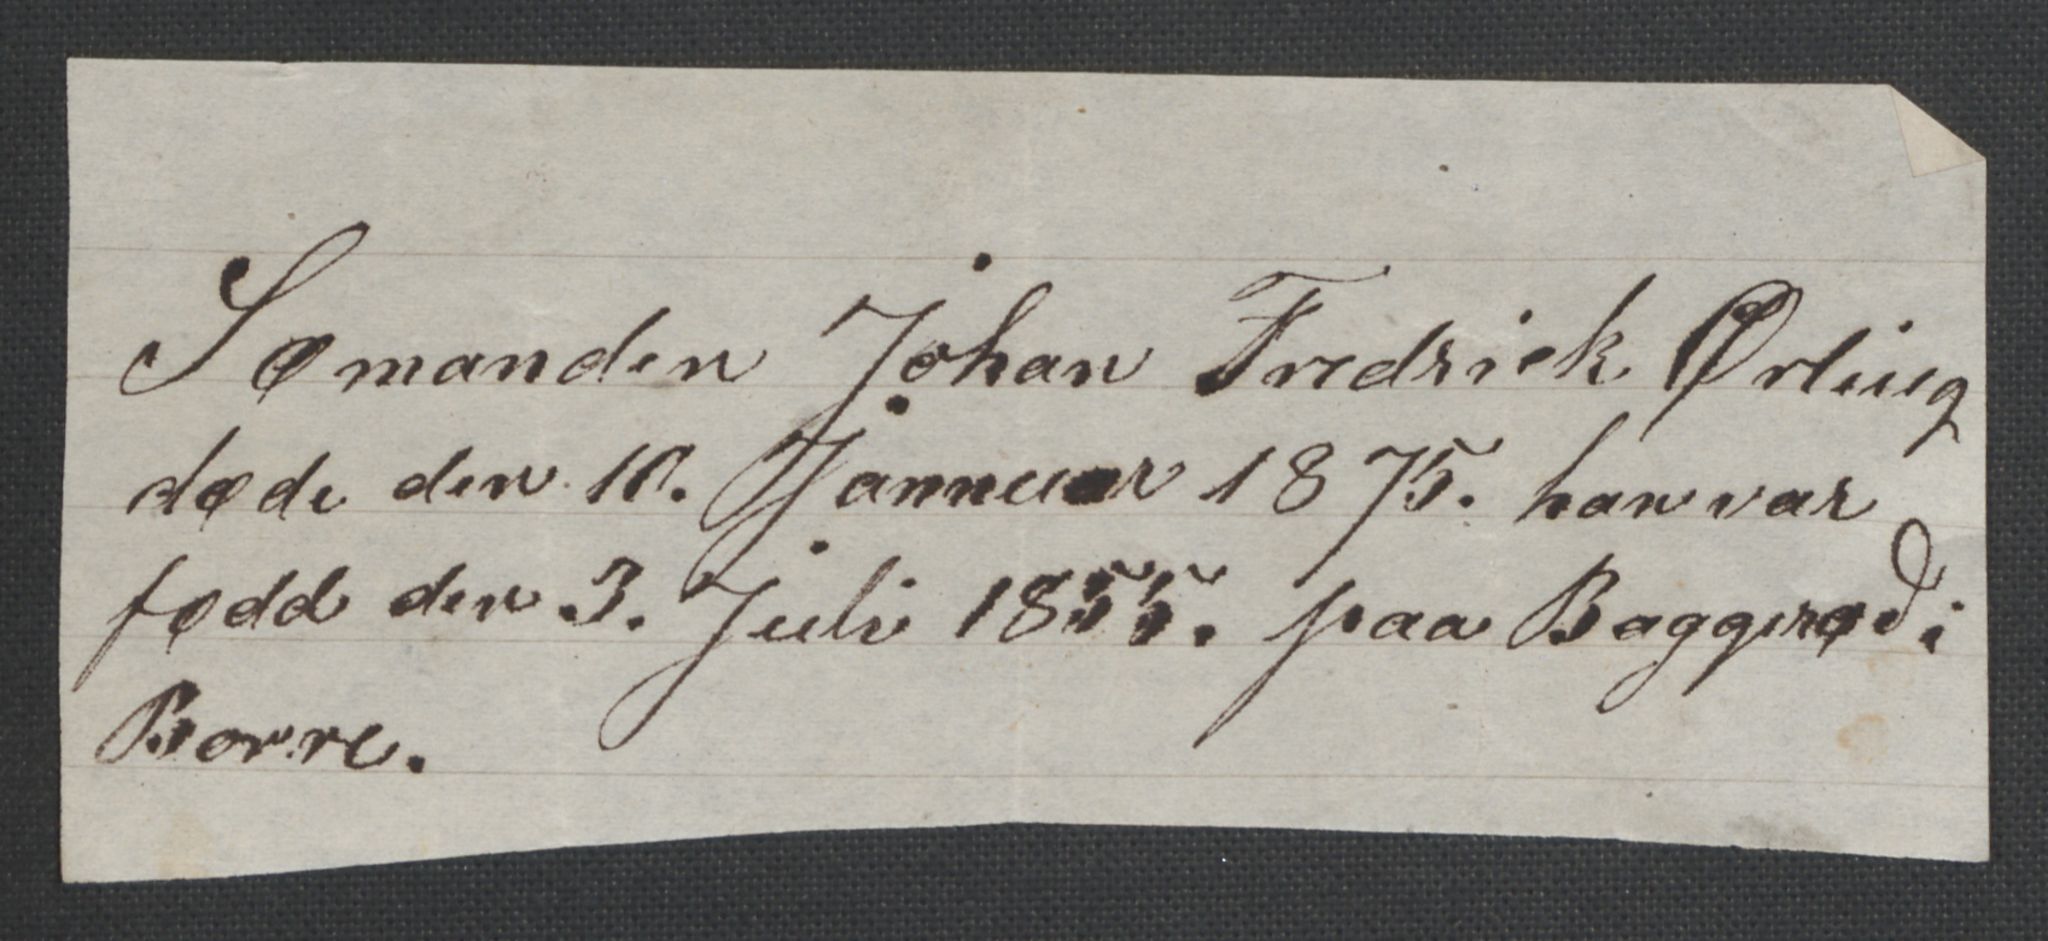 Sømanden Johan Fredrick Ørling
døde den 10. Januar 1875. han var
fødd den 3. Juli 1855. paa Baggerød i
Borre.